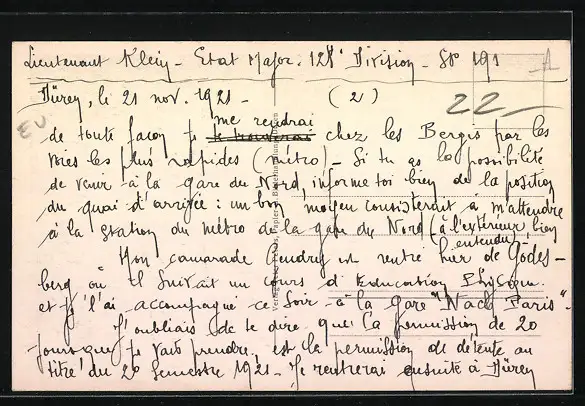 Lieutenant Klein - Etat Major. 128e Division - SP 191
Düren, le 21 nov. 1921 -
(2)
22-
me rendrai
de toute façon je le trouverai chez les Bergis par les
voies les plus rapides (métro) - Si tu as la possibilité
de venir à la gare du Nord, informe toi bien de la position
du quai d'arrivée : un bon moyen consisterait à m'attendre
à la station du métro de la gare du Nord (à l'extérieur, bien
entendu) -
Mon camarade Gendry est rentré hier de Godes-
berg où il suivait un cours d'Education Physique.
et je l'ai accompagné ce soir à la gare "Nach Paris" -
J'oubliais de te dire que la permission de 20
jours que je vais prendre, est la permission de détente au
titre du 2e Semestre 1921 - Je rentrerai ensuite à Düren